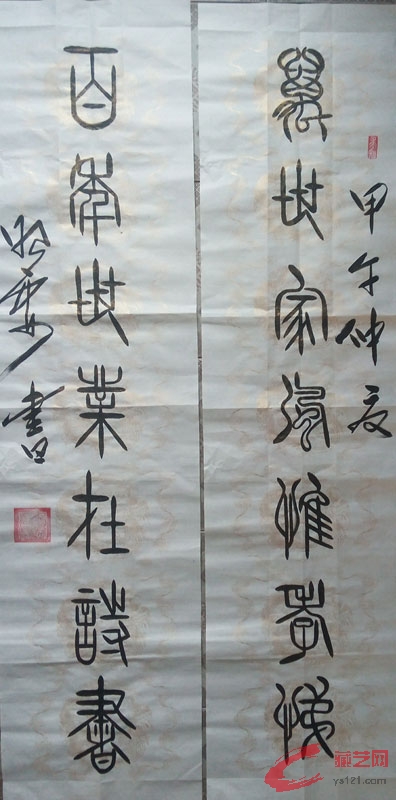 甲午仲夏
萬世家風惟孝悌
百年世業在詩書
書
藏艺网
ys121.com